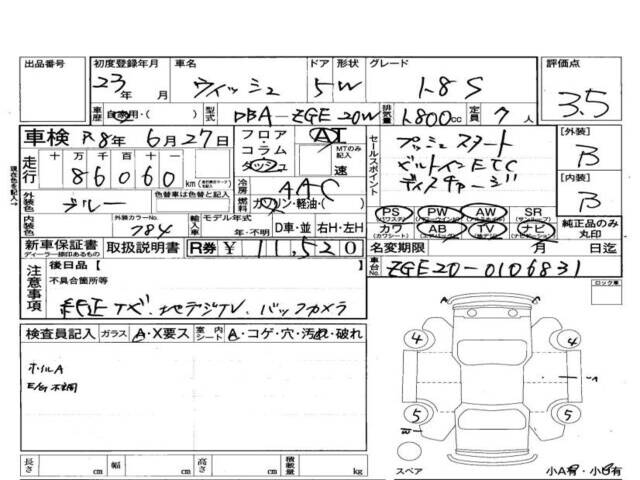 出品番号 初度登録年月 車名 ドア 形状 グレード 評価点
23年 月 ウィッシュ 5 W 1.8S 3.5
車歴 自家用・( ) 型式 DBA-ZGE20W 排気量 1800cc 定員 7人
車検 R8年6月27日 フロア・コラム・ダッシュ AT MTのみ記入 速
セールスポイント プッシュスタート
ビルトインETC
ディスチャージ
[外装] B
[内装] B
走行 十万千百十 86060 km
冷房 AAC
燃料 ガソリン・軽油・( )
外装色 ブルー 色替車は色替と記入
内装色 外装カラーNo. 784 輸入車 モデル年式 年・不明 D車・並 右H・左H
PS (パワステ) PW (パワーウインドウ) AW (アルミ) SR (サンルーフ)
カワ (カワシート) AB (エアバッグ) TV (地デジ) ナビ (ナビゲーション)
純正品のみ丸印
新車保証書 ディーラー捺印あるもの 取扱説明書 R券 ¥11,520
名変期限 月 日迄
車台No. ZGE20-0106831
注意事項 後日品【 】
不具合箇所等
純正ナビ.地デジTV.バックカメラ
ロック車
検査員記入 ガラス A・X要ス 室内シート A・コゲ・穴・汚れ・破れ
ホイルA
E/G
4 4
5 5
W
スペア 小A有・小B有
長さ cm 幅 cm 高さ cm 積載量 kg